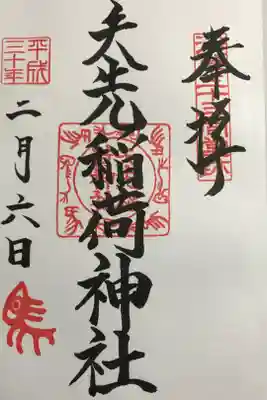 奉拝
矢先稲荷神社
平成
三十年
二月六日